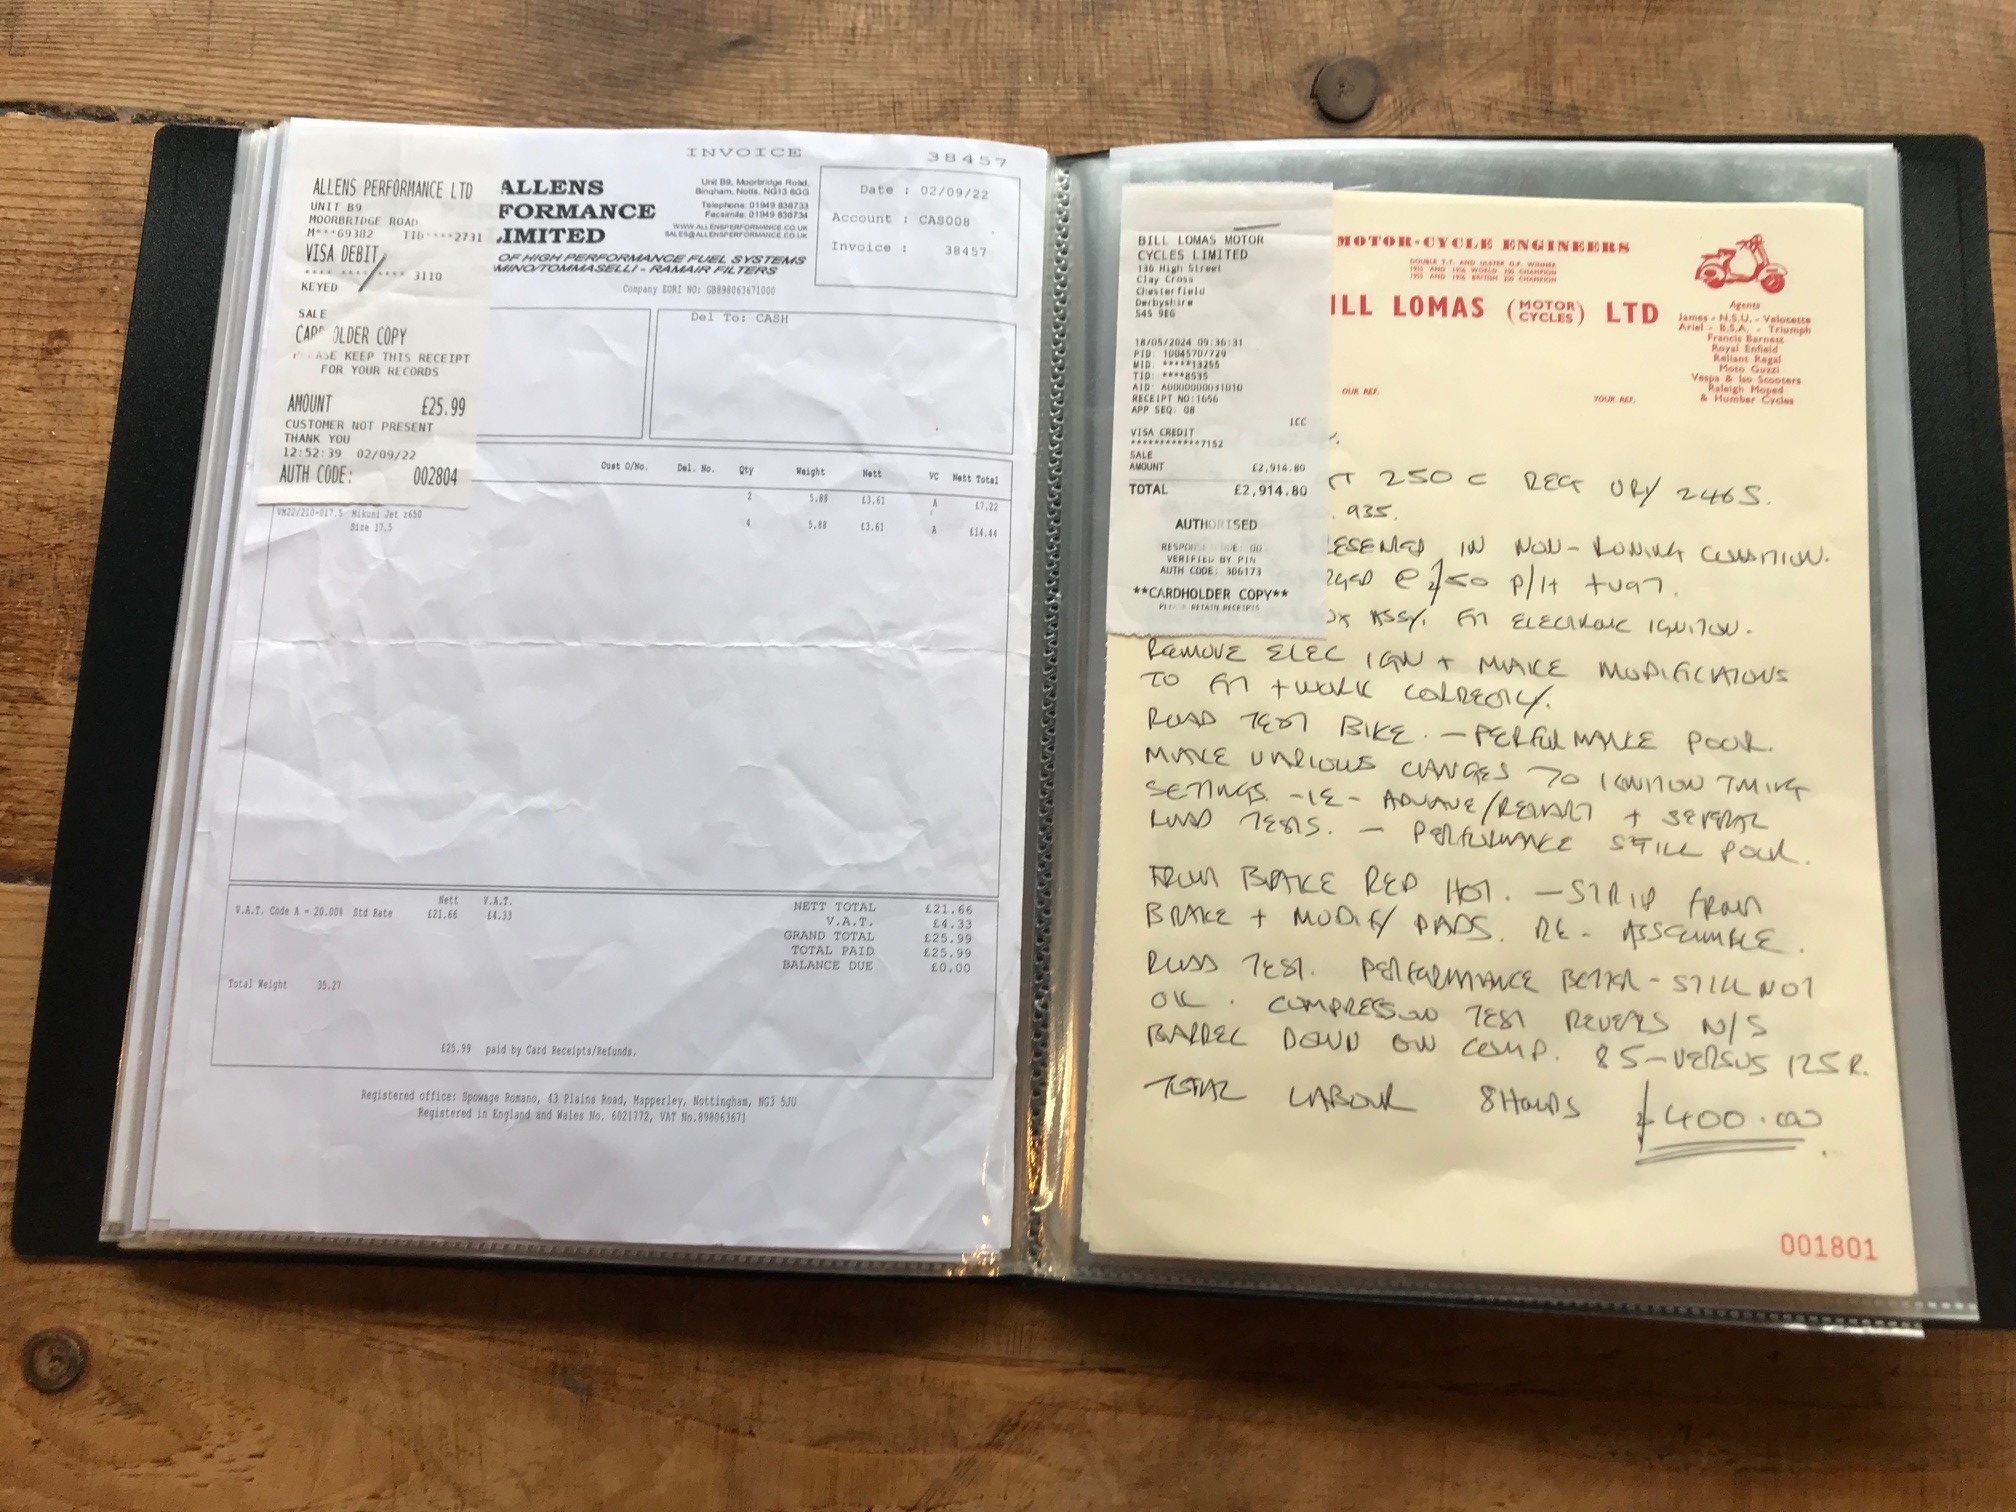 INVOICE
38457
ALLENS
FORMANCE
LIMITED
OF HIGH PERFORMANCE FUEL SYSTEMS
MINO/TOMMASELLI - RAMAIR FILTERS
Company EORI NO: GB898063671000
Unit B9, Moorbridge Road,
Bingham, Notts. NG13 8GG
Telephone: 01949 836733
Facsimile: 01949 836734
WWW.ALLENSPERFORMANCE.CO.UK
SALES@ALLENSPERFORMANCE.CO.UK
Date : 02/09/22
Account : CAS008
Invoice : 38457
ALLENS PERFORMANCE LTD
UNIT B9
MOORBRIDGE ROAD
M***69382 TID****2731
VISA DEBIT
**** **** **** 3110
KEYED
SALE
CARDHOLDER COPY
PLEASE KEEP THIS RECEIPT
FOR YOUR RECORDS
AMOUNT £25.99
CUSTOMER NOT PRESENT
THANK YOU
12:52:39 02/09/22
AUTH CODE: 002804
Del To: CASH
Cust O/No. Del. No. Qty Weight Nett VC Nett Total
2 5.88 £3.61 A £7.22
VM22/210-017.5 Mikuni Jet z650 4 5.88 £3.61 A £14.44
Size 17.5
Nett V.A.T.
V.A.T. Code A = 20.00% Std Rate £21.66 £4.33
NETT TOTAL £21.66
V.A.T. £4.33
GRAND TOTAL £25.99
TOTAL PAID £25.99
BALANCE DUE £0.00
Total Weight 35.27
£25.99 paid by Card Receipts/Refunds.
Registered office: Spowage Romano, 43 Plains Road, Mapperley, Nottingham, NG3 5JU
Registered in England and Wales No. 6021772, VAT No.898063671
BILL LOMAS MOTOR
CYCLES LIMITED
136 High Street
Clay Cross
Chesterfield
Derbyshire
S45 9EG
18/05/2024 09:36:31
PID: 1004570/729
MID: *****13255
TID: ****8535
AID: A0000000031010
RECEIPT NO:1656
APP SEQ: 08
ICC
VISA CREDIT
************7152
SALE
AMOUNT £2,914.80
TOTAL £2,914.80
AUTHORISED
RESPONSE CODE: 00
VERIFIED BY PIN
AUTH CODE: 306173
**CARDHOLDER COPY**
PLEASE RETAIN RECEIPTS
MOTOR-CYCLE ENGINEERS
DOUBLE T.T. AND ULSTER G.P. WINNER
1955 AND 1956 WORLD 350 CHAMPION
ILL LOMAS (MOTOR CYCLES) LTD
Agents
James - N.S.U. - Velocette
Ariel - B.S.A. - Triumph
Francis Barnett
Royal Enfield
Reliant Regal
Moto Guzzi
Vespa & Iso Scooters
Raleigh Moped
& Humber Cycles
OUR REF.
YOUR REF.
250 C REG URY 246S.
935.
ESENTED IN NON-RUNING CONDITION.
RGED @ £50 P/H + VAT.
ASSY. FIT ELECTRONIC IGNITION.
REMOVE ELEC IGN + MAKE MODIFICATIONS
TO FIT + WORK CORRECTLY.
ROAD TEST BIKE. - PERFORMANCE POOR.
MAKE VARIOUS CHANGES TO IGNITION TIMING
SETTINGS. - IE - ADVANCE/RETARD + SEVERAL
ROAD TESTS. - PERFORMANCE STILL POOR.
FRONT BRAKE RED HOT. - STRIP FRONT
BRAKE + MODIFY PADS. RE-ASSEMBLE.
ROAD TEST. PERFORMANCE BETTER - STILL NOT
OK. COMPRESSION TEST REVEALS N/S
BARREL DOWN ON COMP. 85 - VERSUS 125 R.
TOTAL LABOUR 8 HOURS £400.00
001801